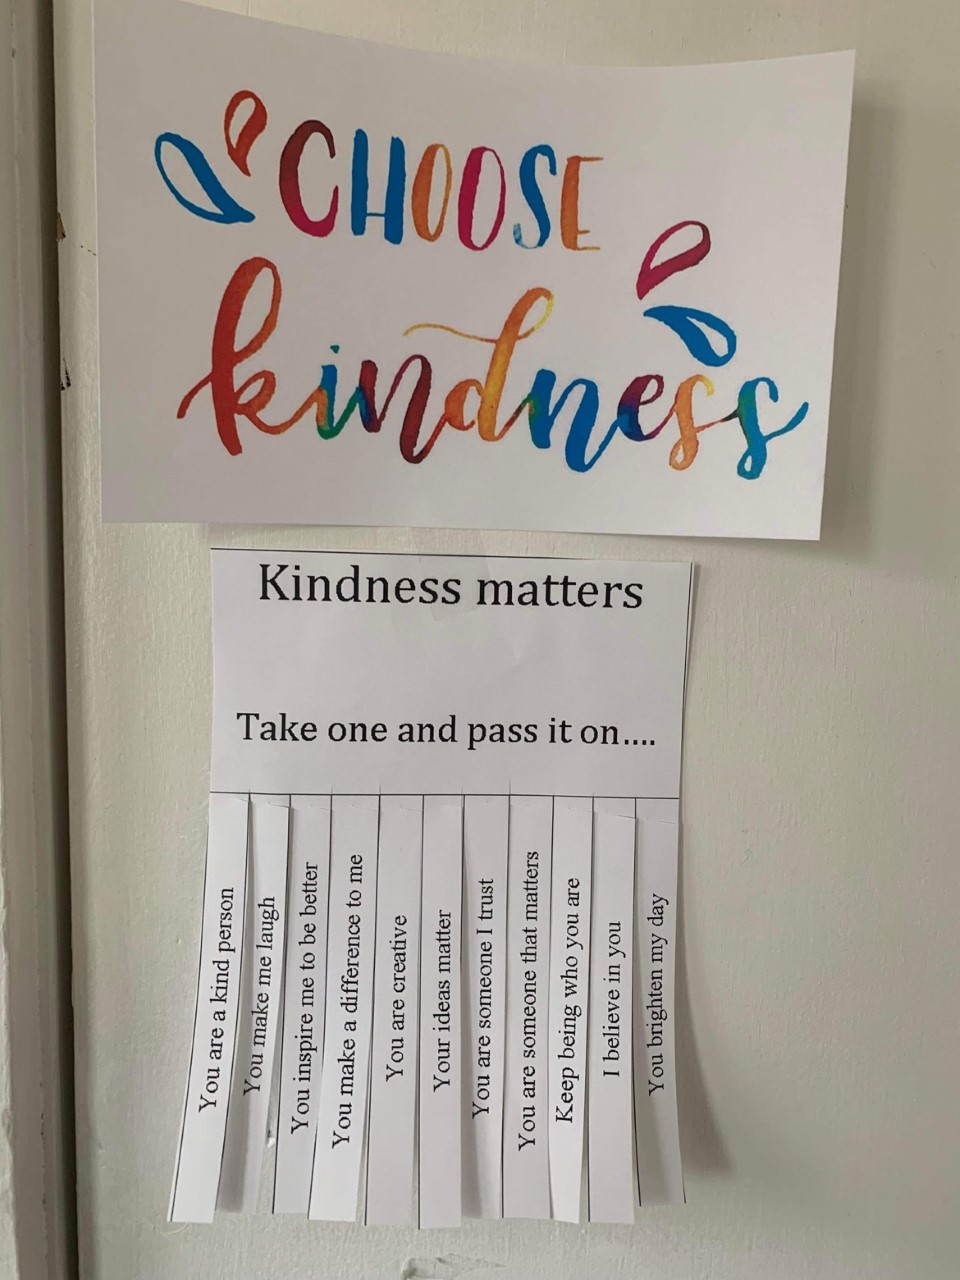 CHOOSE
kindness
Kindness matters
Take one and pass it on....
You are a kind person
You make me laugh
You inspire me to be better
You make a difference to me
You are creative
Your ideas matter
You are someone I trust
You are someone that matters
Keep being who you are
I believe in you
You brighten my day